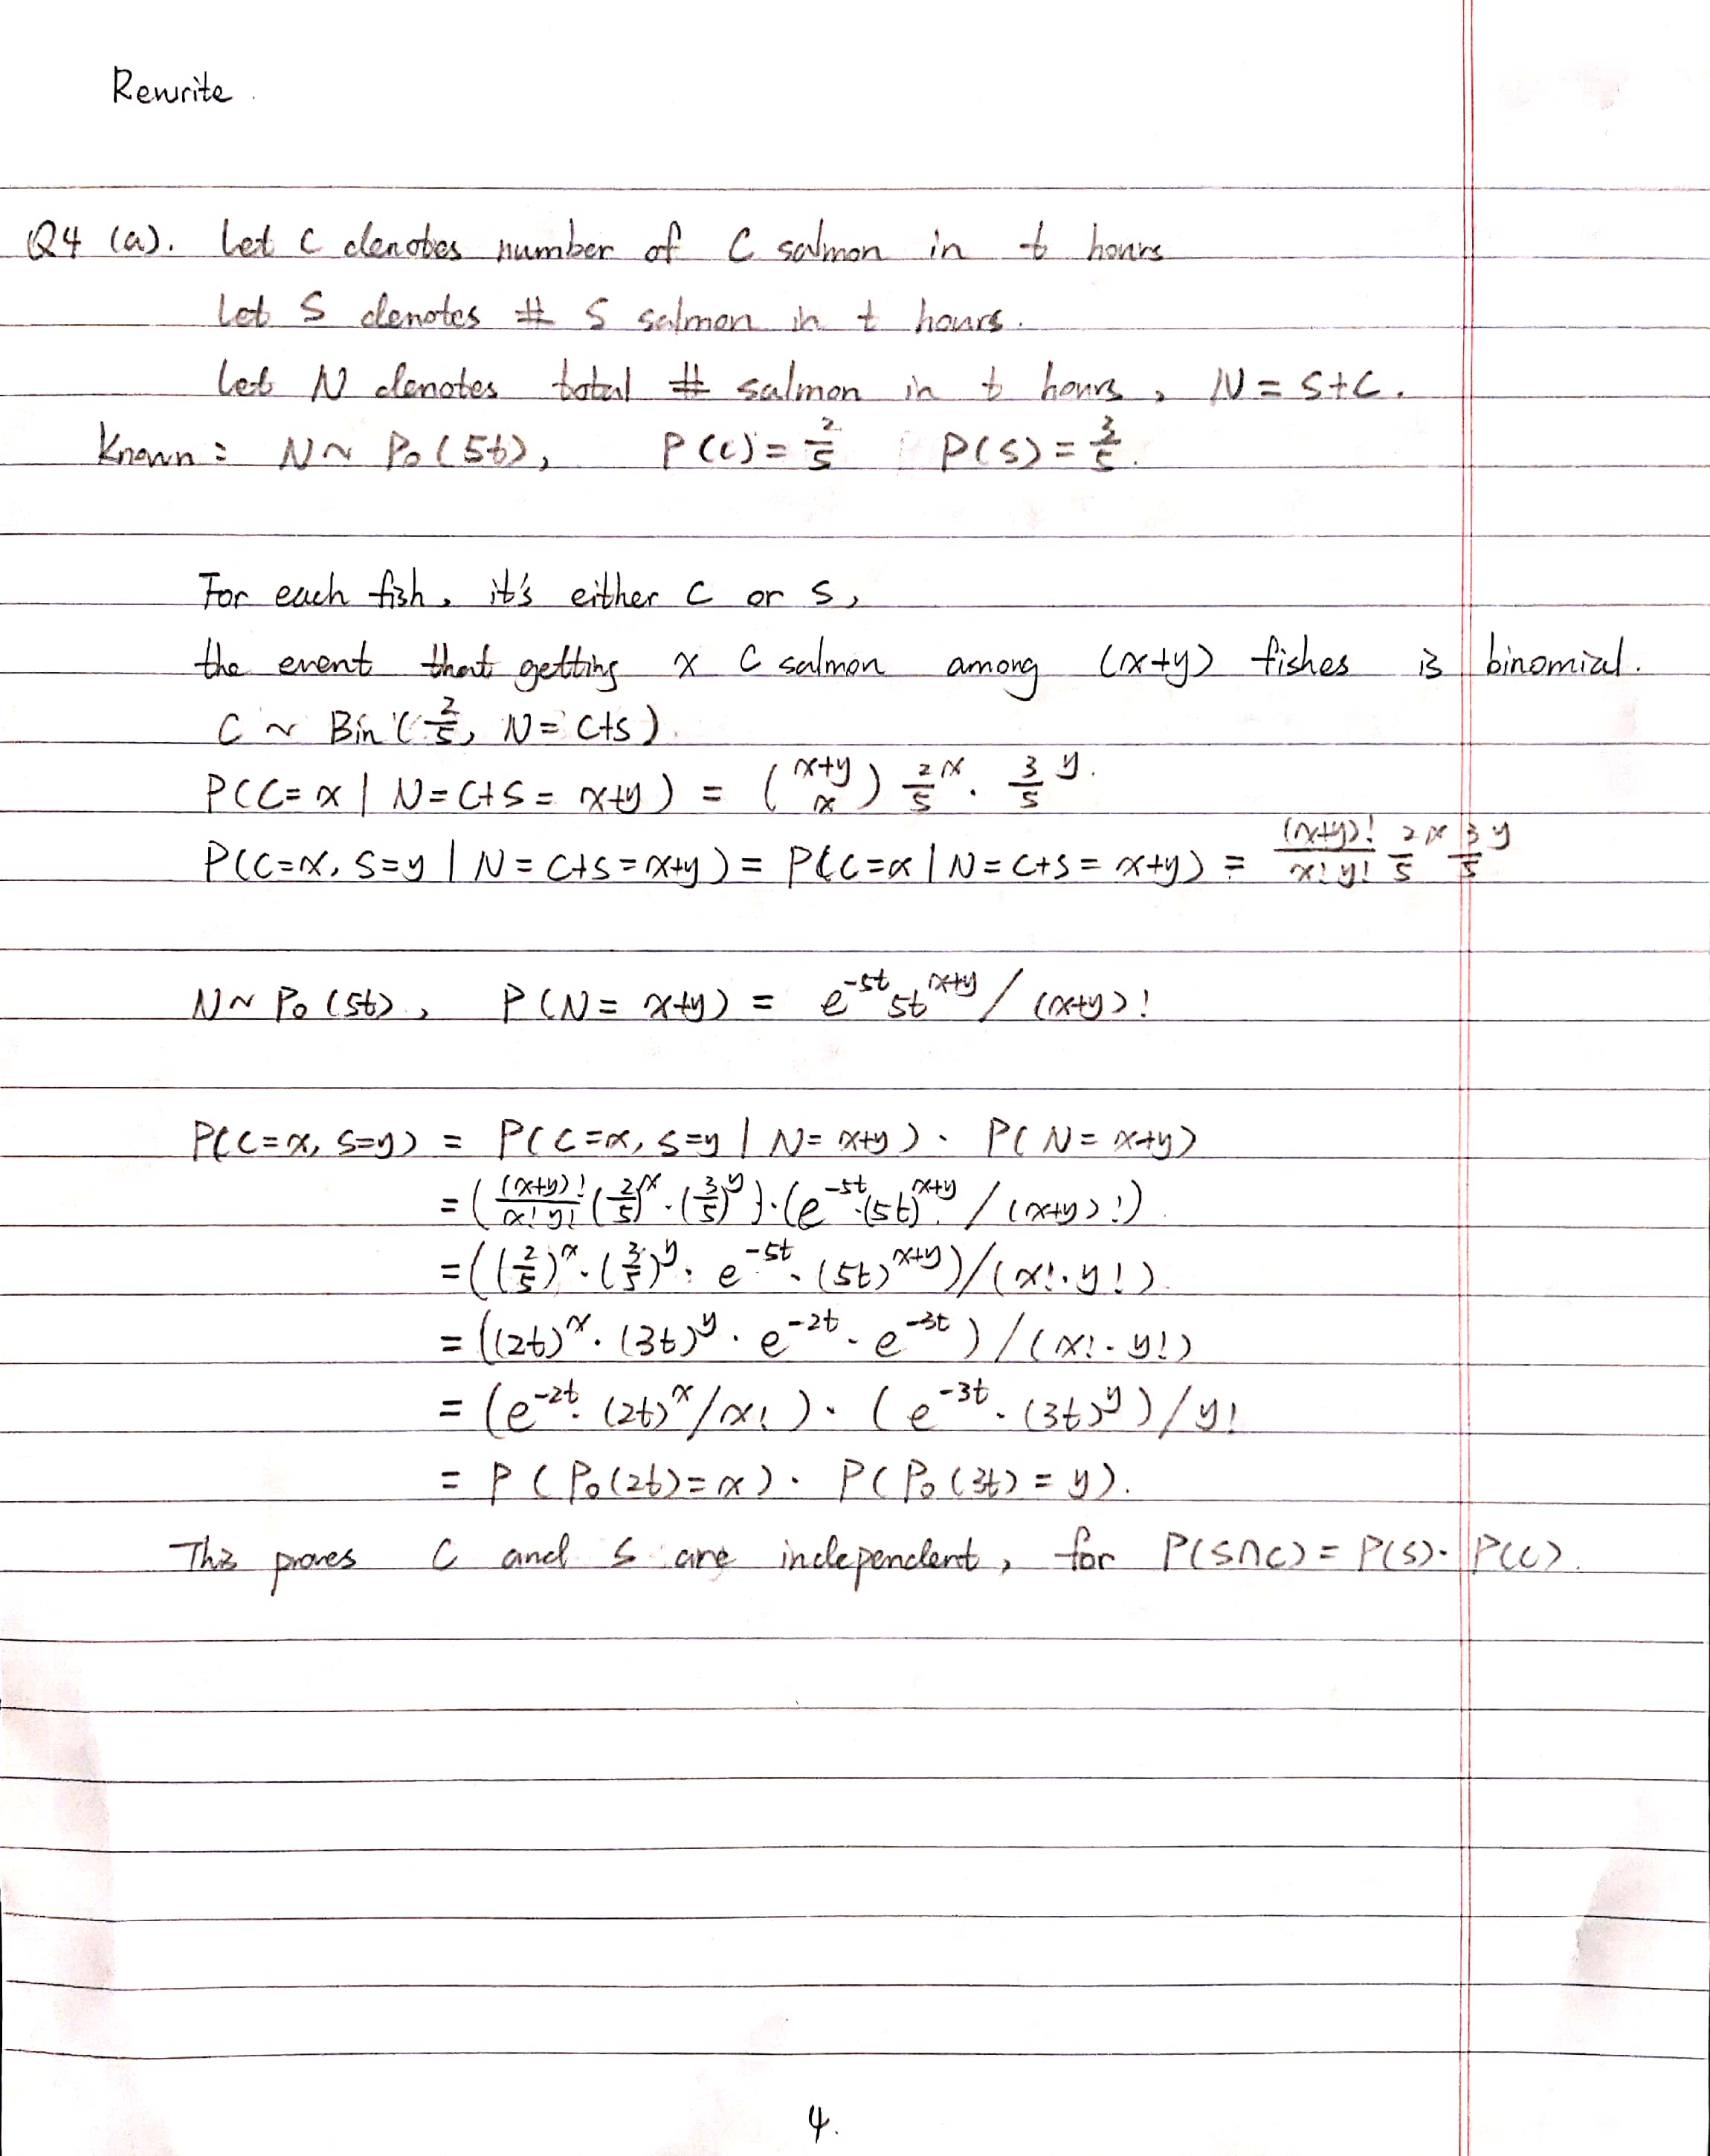 Rewrite.
Q4 (a). Let C denotes number of C salmon in t hours
Let S denotes # S salmon in t hours.
Let N denotes total # salmon in t hours, N = S+C.
Known: N ~ Po(5t), P(C) = 2/5 P(S) = 3/5.
For each fish, it's either C or S,
the event that getting x C salmon among (x+y) fishes is binomial.
C ~ Bin(2/5, N = C+S).
P(C=x | N=C+S=x+y) = (x+y x) 2/5^x · 3/5^y.
P(C=x, S=y | N=C+S=x+y) = P(C=x | N=C+S=x+y) = (x+y)!/x!y! 2/5^x 3/5^y
N ~ Po(5t), P(N=x+y) = e^-5t 5t^x+y / (x+y)!
P(C=x, S=y) = P(C=x, S=y | N=x+y) · P(N=x+y)
= ((x+y)!/x!y! (2/5)^x · (3/5)^y) · (e^-5t · (5t)^x+y / (x+y)!)
= ((2/5)^x · (3/5)^y · e^-5t · (5t)^x+y) / (x! · y!)
= ((2t)^x · (3t)^y · e^-2t · e^-3t) / (x! · y!)
= (e^-2t · (2t)^x / x!) · (e^-3t · (3t)^y) / y!
= P(Po(2t)=x) · P(Po(3t)=y).
This proves C and S are independent, for P(S∩C) = P(S) · P(C).
4.